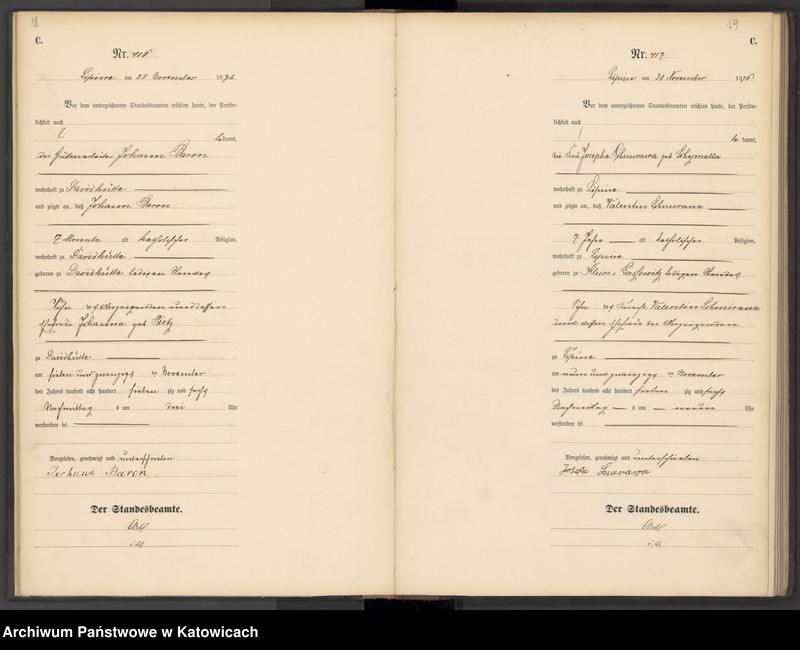 18
C.
Nr. 416
Lipine am 28 November 1876
Vor dem unterzeichneten Standesbeamten erschien heute, der Persön-
lichkeit nach
bekannt,
der Hüttenarbeiter Johann Baron
wohnhaft zu Davidhütte
und zeigte an, daß Johann Baron
7 Monate alt katholischer Religion,
wohnhaft zu Davidhütte
geboren zu Davidhütte ledigen Standes
Sohn des Anzeigenden und dessen
Ehefrau Johanna geb
zu Davidhütte
am sieben und zwanzigsten November
des Jahres tausend acht hundert siebenzig und sechs
Nachmittag s um drei Uhr
verstorben sei
Vorgelesen, genehmigt und unterschrieben
Johann Baron
Der Standesbeamte.
19
C.
Nr. 417
Lipine am 30 November 1876
Vor dem unterzeichneten Standesbeamten erschien heute, der Persön-
lichkeit nach
bekannt,
die Frau Josepha geb
wohnhaft zu Lipine
und zeigte an, daß Valentin
7 Jahre alt katholischer Religion,
wohnhaft zu Lipine
geboren zu Klein ledigen Standes
Sohn des Valentin
und dessen Ehefrau der Anzeigenden
zu Lipine
am neun und zwanzigsten November
des Jahres tausend acht hundert siebenzig und sechs
Nachmittag s um neun Uhr
verstorben sei
Vorgelesen, genehmigt und unterschrieben
Der Standesbeamte.
Archiwum Państwowe w Katowicach